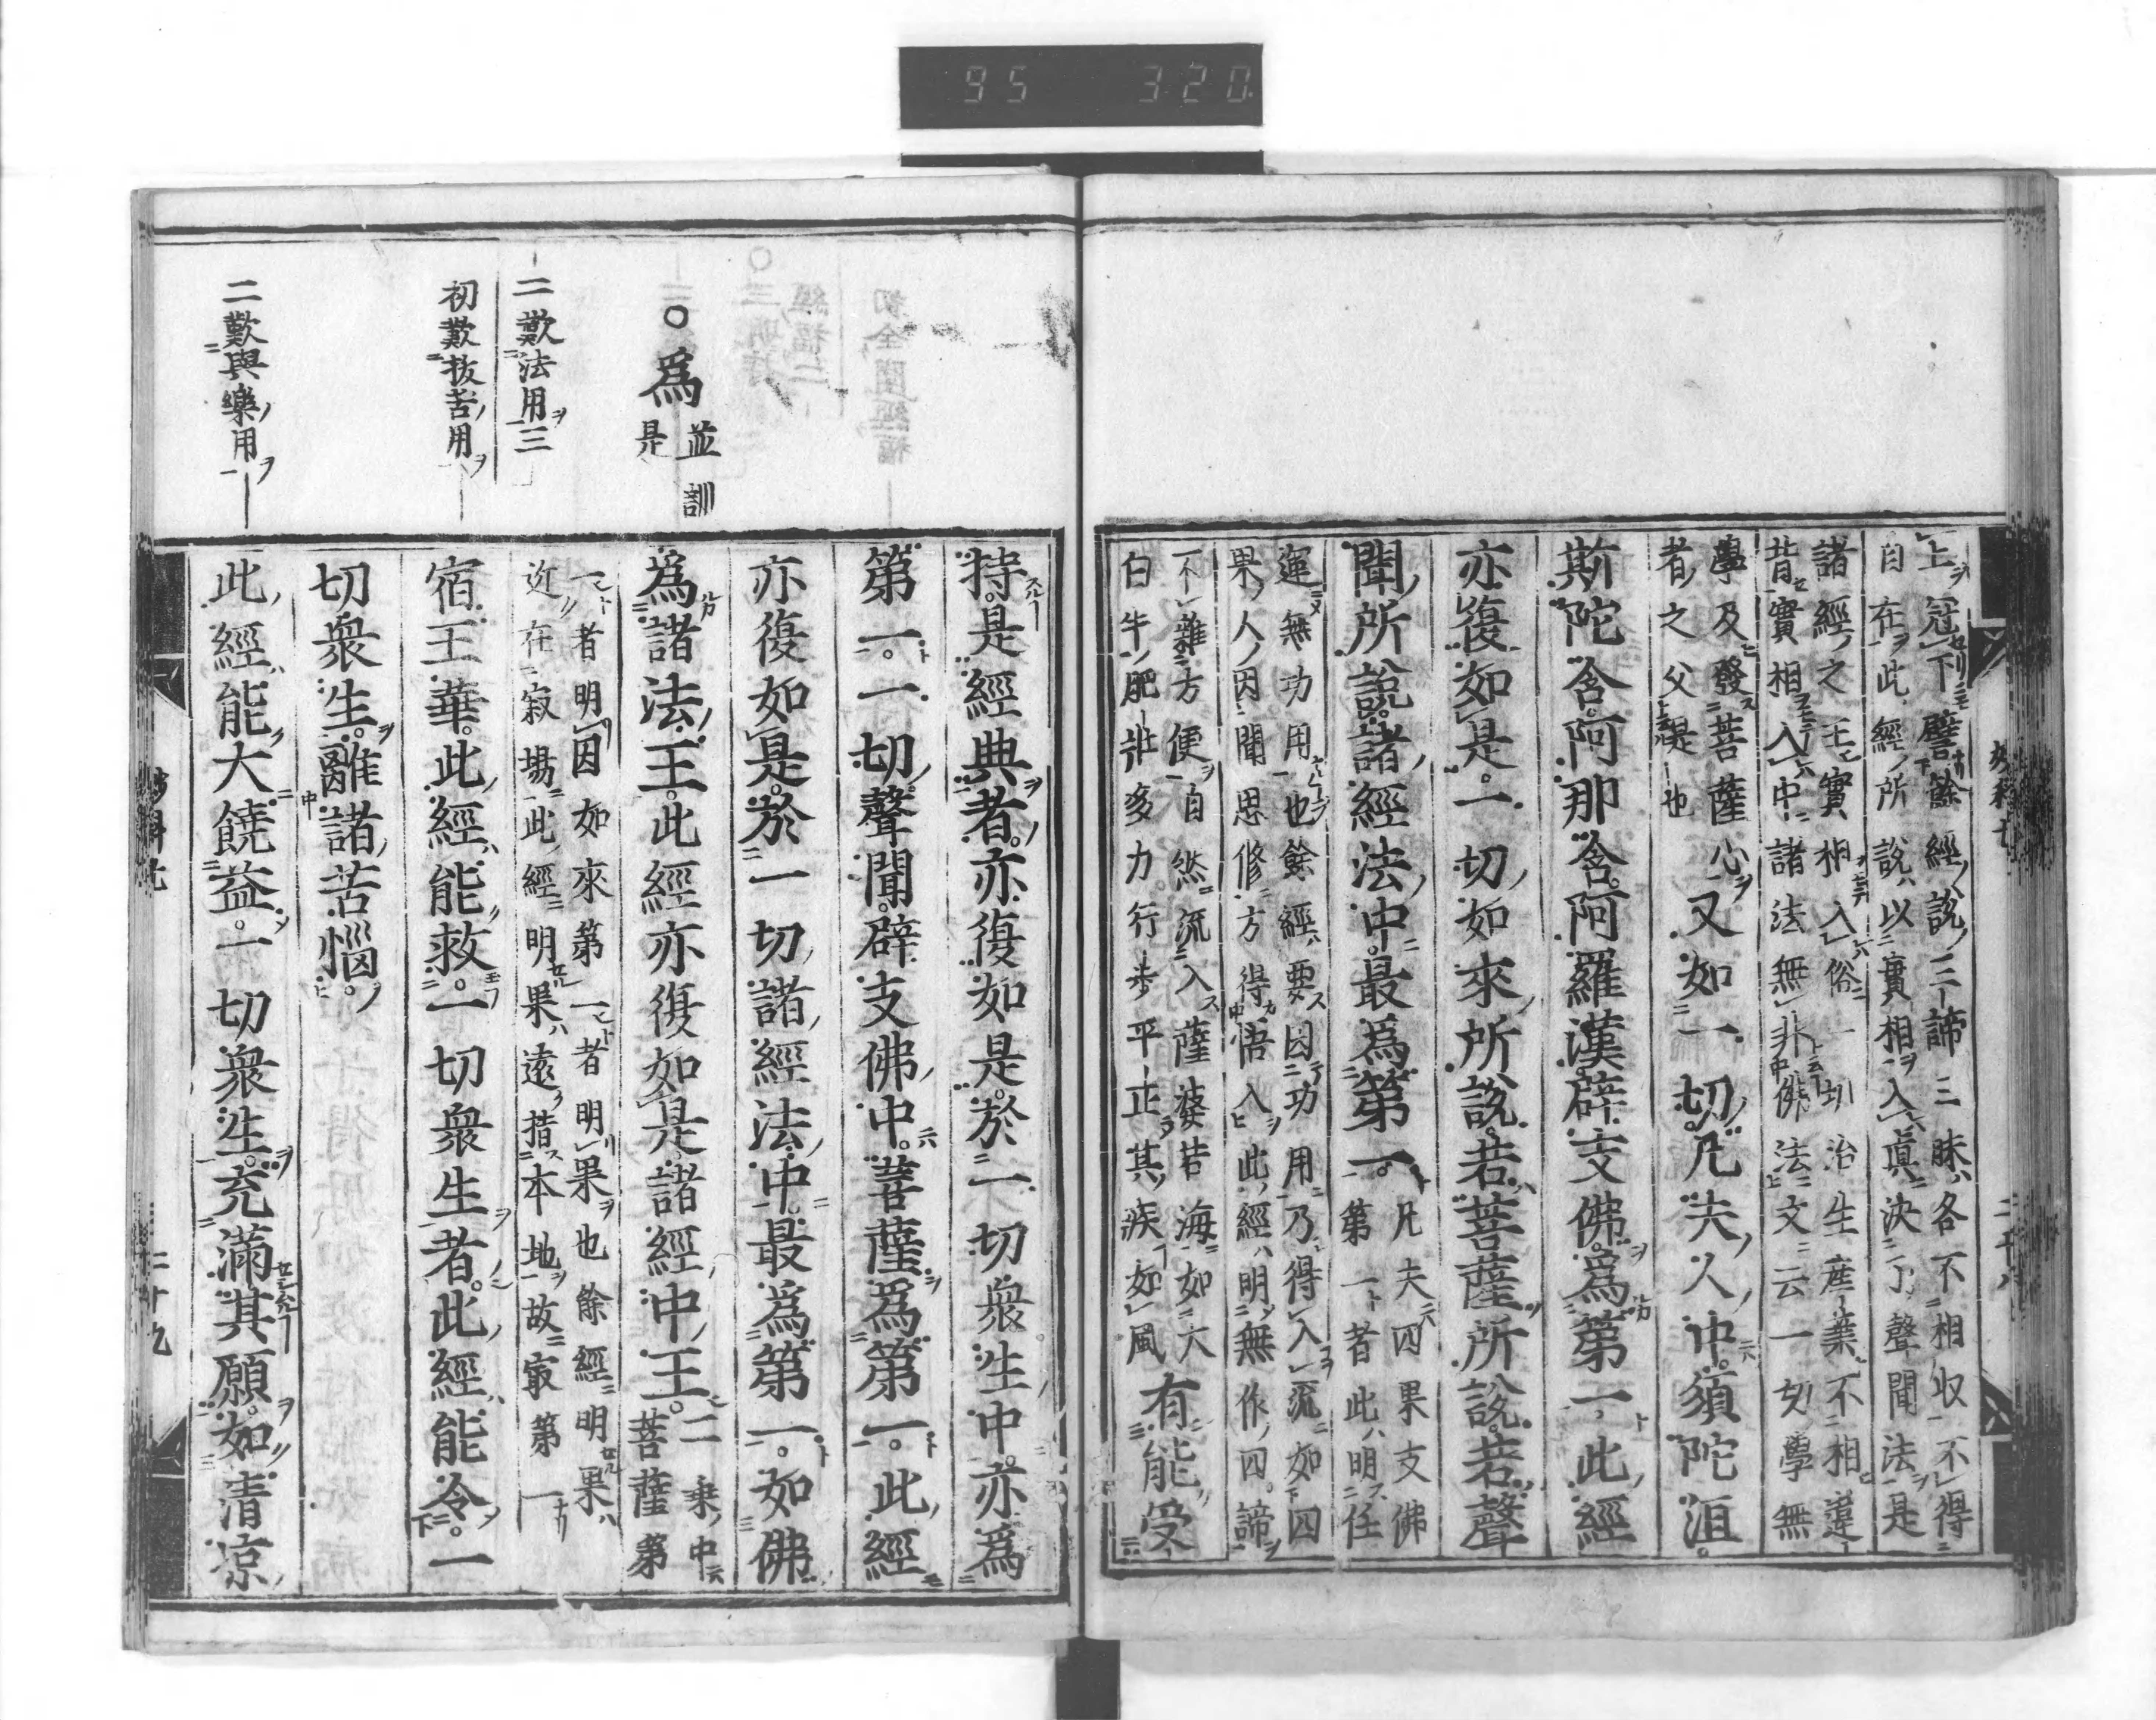 95 320
上冠下譬餘經說三諦三昧各不相収不得
自在此經所說以實相入眞決了聲聞法是
諸經之王實相入俗一切治生産業不相違
昔實相入中諸法無非佛法文云一切學無
學及發菩薩心
者之父是也
又如一切凡夫人中須陀洹
斯陀含阿那含阿羅漢辟支佛爲第一此經
亦復如是一切如來所說若菩薩所說若聲
聞所說諸經法中最爲第一
凡夫四果支佛
第一者此明任
運無功用也餘經要因功用乃得入流如四
果人因聞思修方得悟入此經明無作四諦
不雜方便自然流入薩婆若海如六
白牛肥壯多力行步平正其疾如風
有能受
持是經典者亦復如是於一切衆生中亦爲
第一一切聲聞辟支佛中菩薩爲第一此經
亦復如是於一切諸經法中最爲第一如佛
爲諸法王此經亦復如是諸經中王
二乘中
菩薩第
一者明因如來第一者明果也餘經明果
近在寂場此經明果遠指本地故最第一
宿王華此經能救一切衆生者此經能令一
切衆生離諸苦惱
此經能大饒益一切衆生充滿其願如清涼
爲
並訓
是
二歎法用三
初歎抜苦用
二歎與樂用
二十九